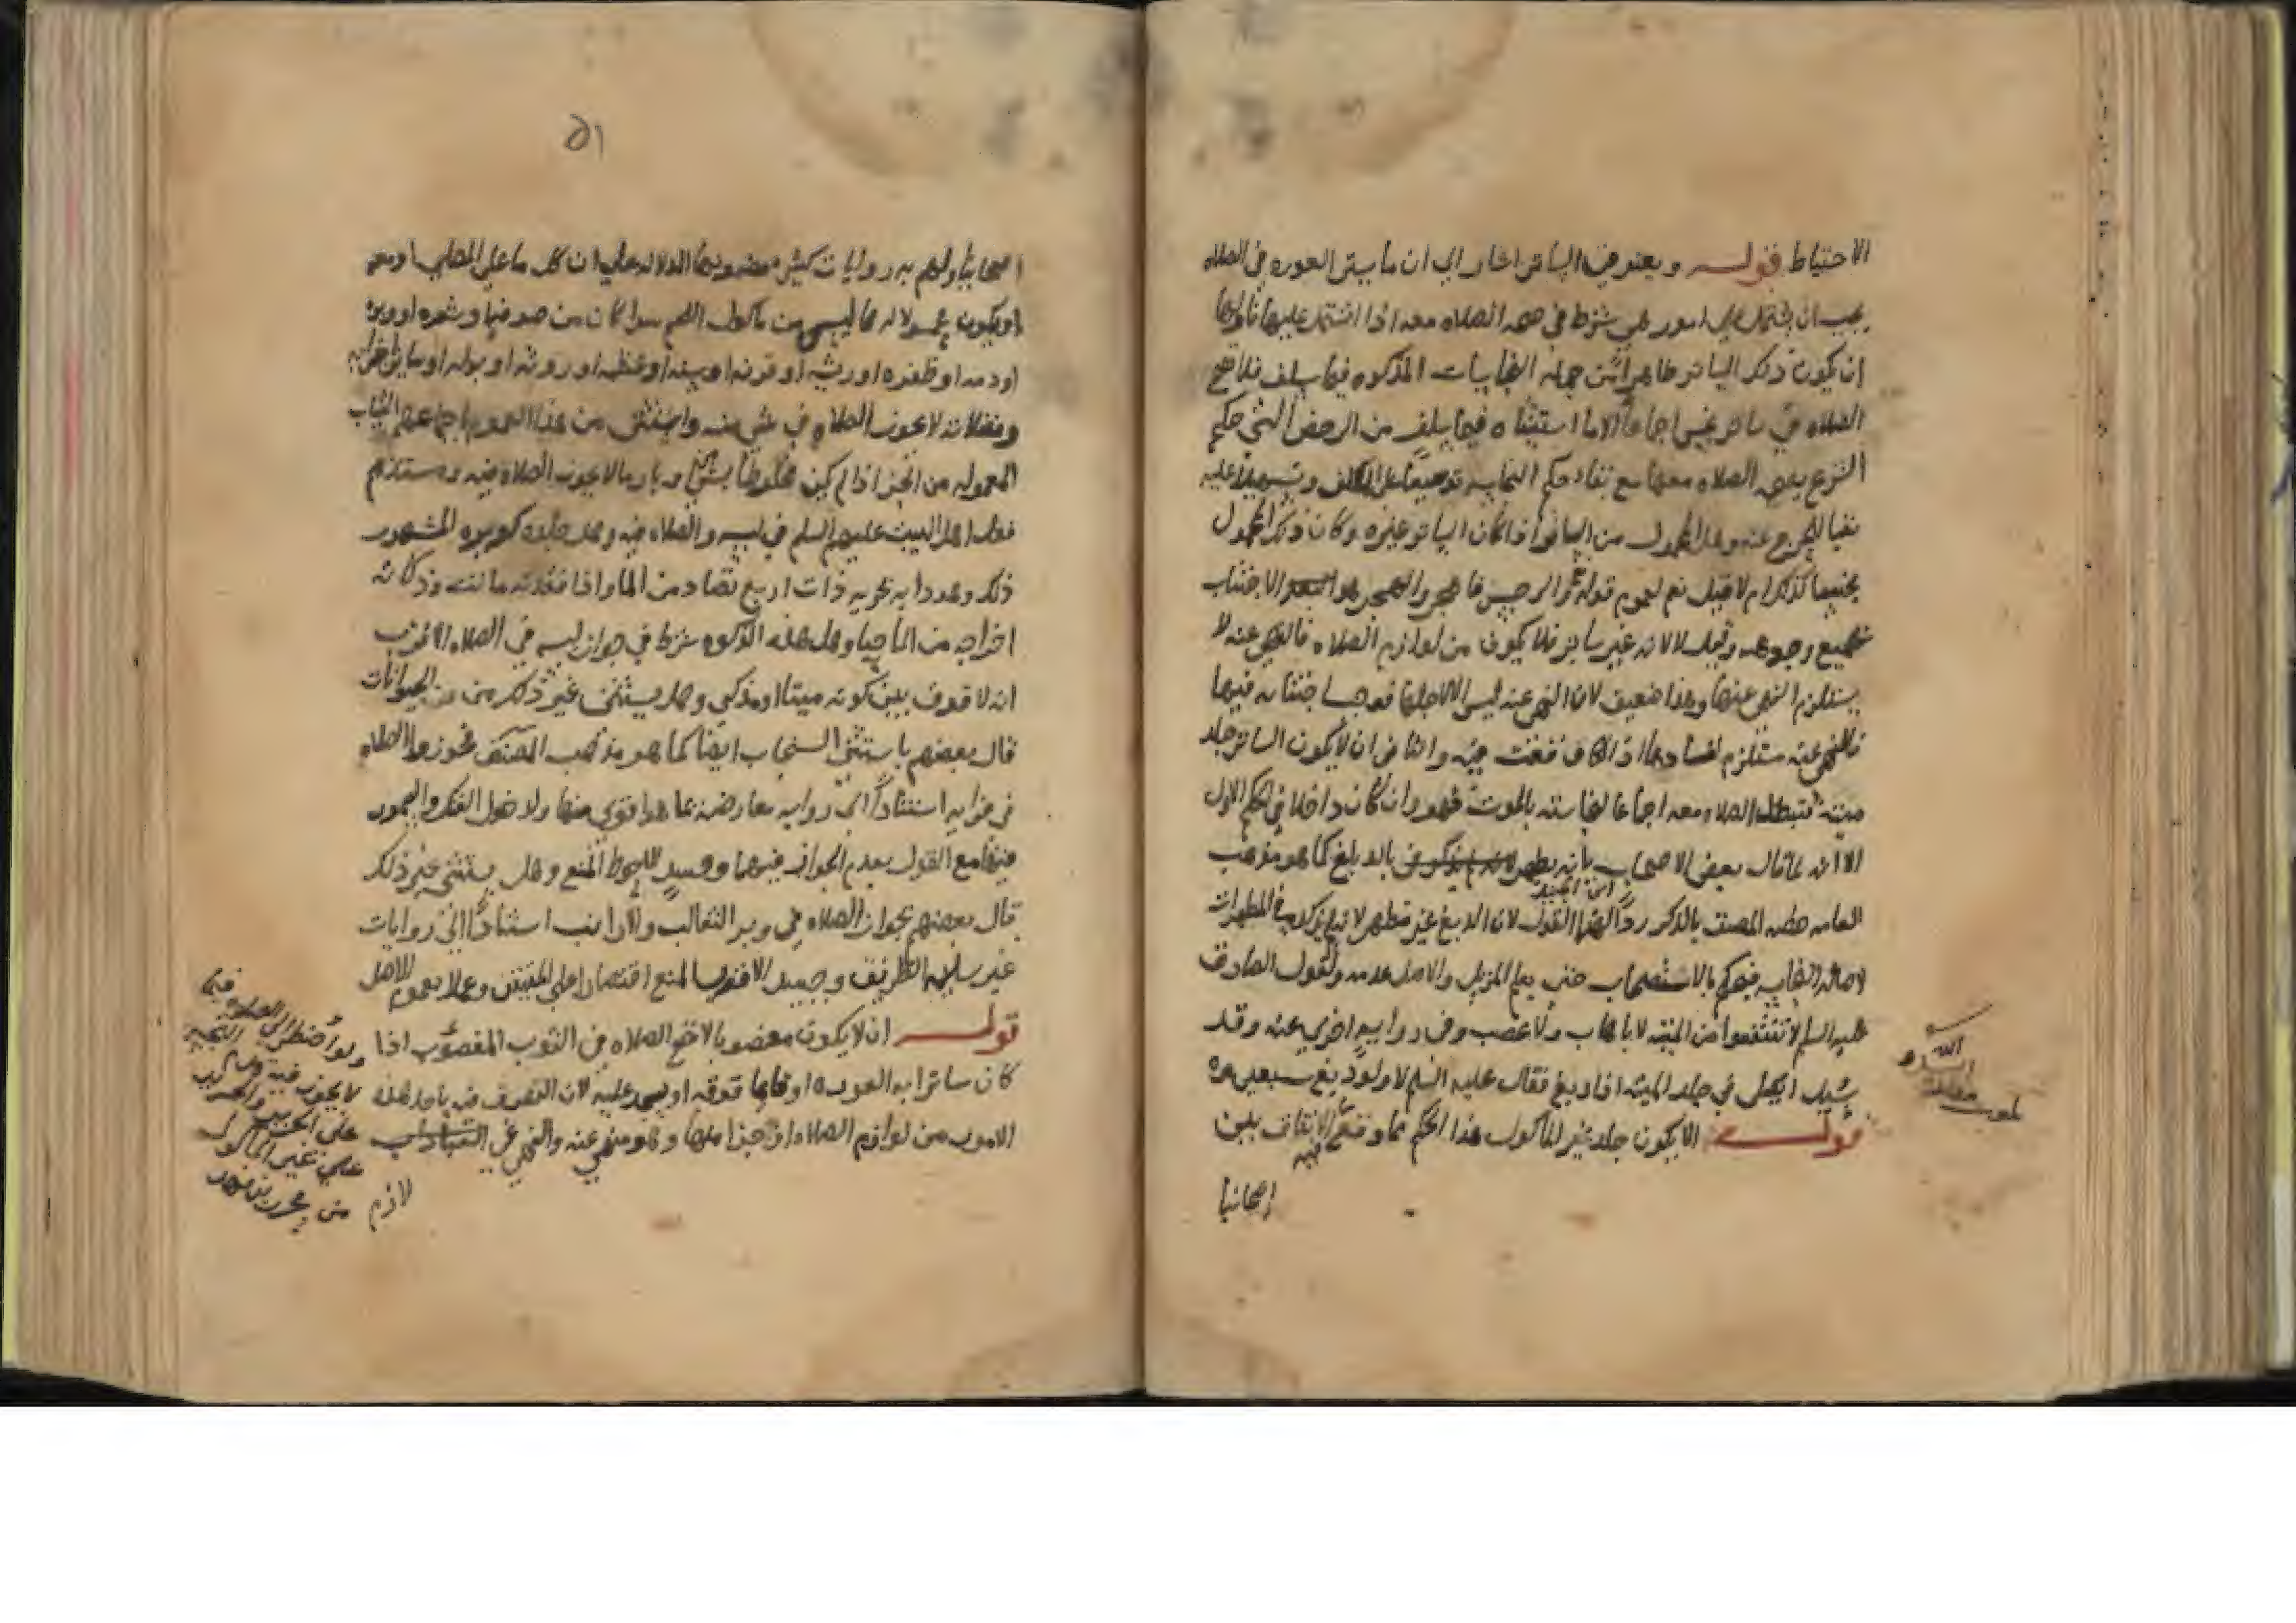 الاحتياط قوله ويعتبر في الساتر اشار الى ان ما يستر العوره في الصلاه
يجب ان يشتمل على امور هي شرط في صحه الصلاه معه اذا اشتمل عليها فاولها
ان يكون ذكر الساتر طاهرا من جمله النجاسات المذكوره فيما سلف فلا تصح
الصلاه في ساتر نجس اجماعا الا ما استثناه فيما سلف من الرخص التي حكم
الشرع بصحه الصلاه معها مع بقاء حكم النجاسه توسيعا على المكلف وتسهيلا عليه
نفيا للحرج عنه وهل المحمول من الساتر اذا كان الساتر غيره وكان ذكر المحمول
نجسا كذلك ام لا قيل نعم لعموم قوله تع والرجس فاهجر والهجر هو الاجتناب
بجميع وجوهه وقيل لا لانه غير ساتر فلا يكون من لوازم الصلاه فالنهي عنه لا
يستلزم النهي عنها وهذا ضعيف لان النهي عنه ليس الا لاجلها فوجب اجتنابه فيها
فالنهي عنه مستلزم لفسادها اذا وقعت فيه والثاني ان لا يكون الساتر جلد
ميته فتبطل الصلاه معه اجماعا لنجاسته بالموت فهو وان كان داخلا في الحكم الاول
الا انه لما قال بعض الاصحاب بانه يطهر بالدبلغ كما هو مذهب
ابن الجنيد
العامه خصه المصنف بالذكر ردا لهذا القول لان الدبغ غير مطهر لانه لم يذكر في المطهرات
لاصاله النجاسه فيحكم بالاستصحاب حتى يعلم المزيل والاصل عدمه ولقول الصادق
عليه السلم لا تنتفعوا من الميته لا باهاب ولا عصب وفي روايه اخرى عنه وقد
سئل ايصلى في جلد الميته اذا دبغ فقال عليه السلم لا ولو دبغ سبعين مره
قوله الا يكون جلد غير الماكول هذا الحكم مما وقع الاتفاق بين
فيه
اصحابنا
٥١
اصحابنا ولهم به روايات كثير مضمونها الدلاله على ان كل ما على المصلي او معه
او يكون محمولا له مما ليس من ماكول اللحم سوا كان من صوفه او شعره او وبره
او دمه او ظفره او ريشه او قرنه او سنه او عظمه او روثه او بوله او ساير اجزائه
وفضلاته لا يجوز الصلاه في شي منه واستثنى من هذا العموم اجماعهم الثياب
المعموله من الخز اذا لم يكن مخلوطا بشي من وبار ما لا يجوز الصلاه فيه ومستندهم
فعل اهل البيت عليهم السلم في لبسه والصلاه فيه وهل جلده كوبره المشهور
ذلك وهو دابه بحريه ذات اربع تصاد من الما واذا فقدته ماتت وذكاته
اخراجه من الما حيا وهل هذه الذكوه شرط في جواز لبسه في الصلاه الاقرب
انه لا فرق بين كونه ميتا او مذكى وهل يستثنى غير ذلك من الحيوانات
قال بعضهم باستثنى السنجاب ايضا كما هو مذهب المصنف فجوزوا الصلاه
في فرايه استنادا الى روايه معارضه بما هو اقوى منها ولدخول الفنك والسمور
فيها مع القول بعدم الجواز فيهما والاحوط المنع وهل يستثنى غير ذلك
قال بعضهم بجواز الصلاه في وبر الثعالب والارانب استنادا الى روايات
غير سليمه الطريق وجيند الاقرب المنع اقتصارا على المتيقن وعملا بعموم الاصل
قوله ان لا يكون مغصوبا لا تصح الصلاه في الثوب المغصوب اذا
كان ساترا به العوره او قايما فوقه او يسجد عليه لان التصرف فيه باحد هذه
الامور من لوازم الصلاه او جزا منها وهو منهي عنه والنهي في العبادات
لازم
ولو اضطر الى الصلاه فيما
لا يجوز فيه قدم النجس
على الحرير والحرير
على غير الماكول